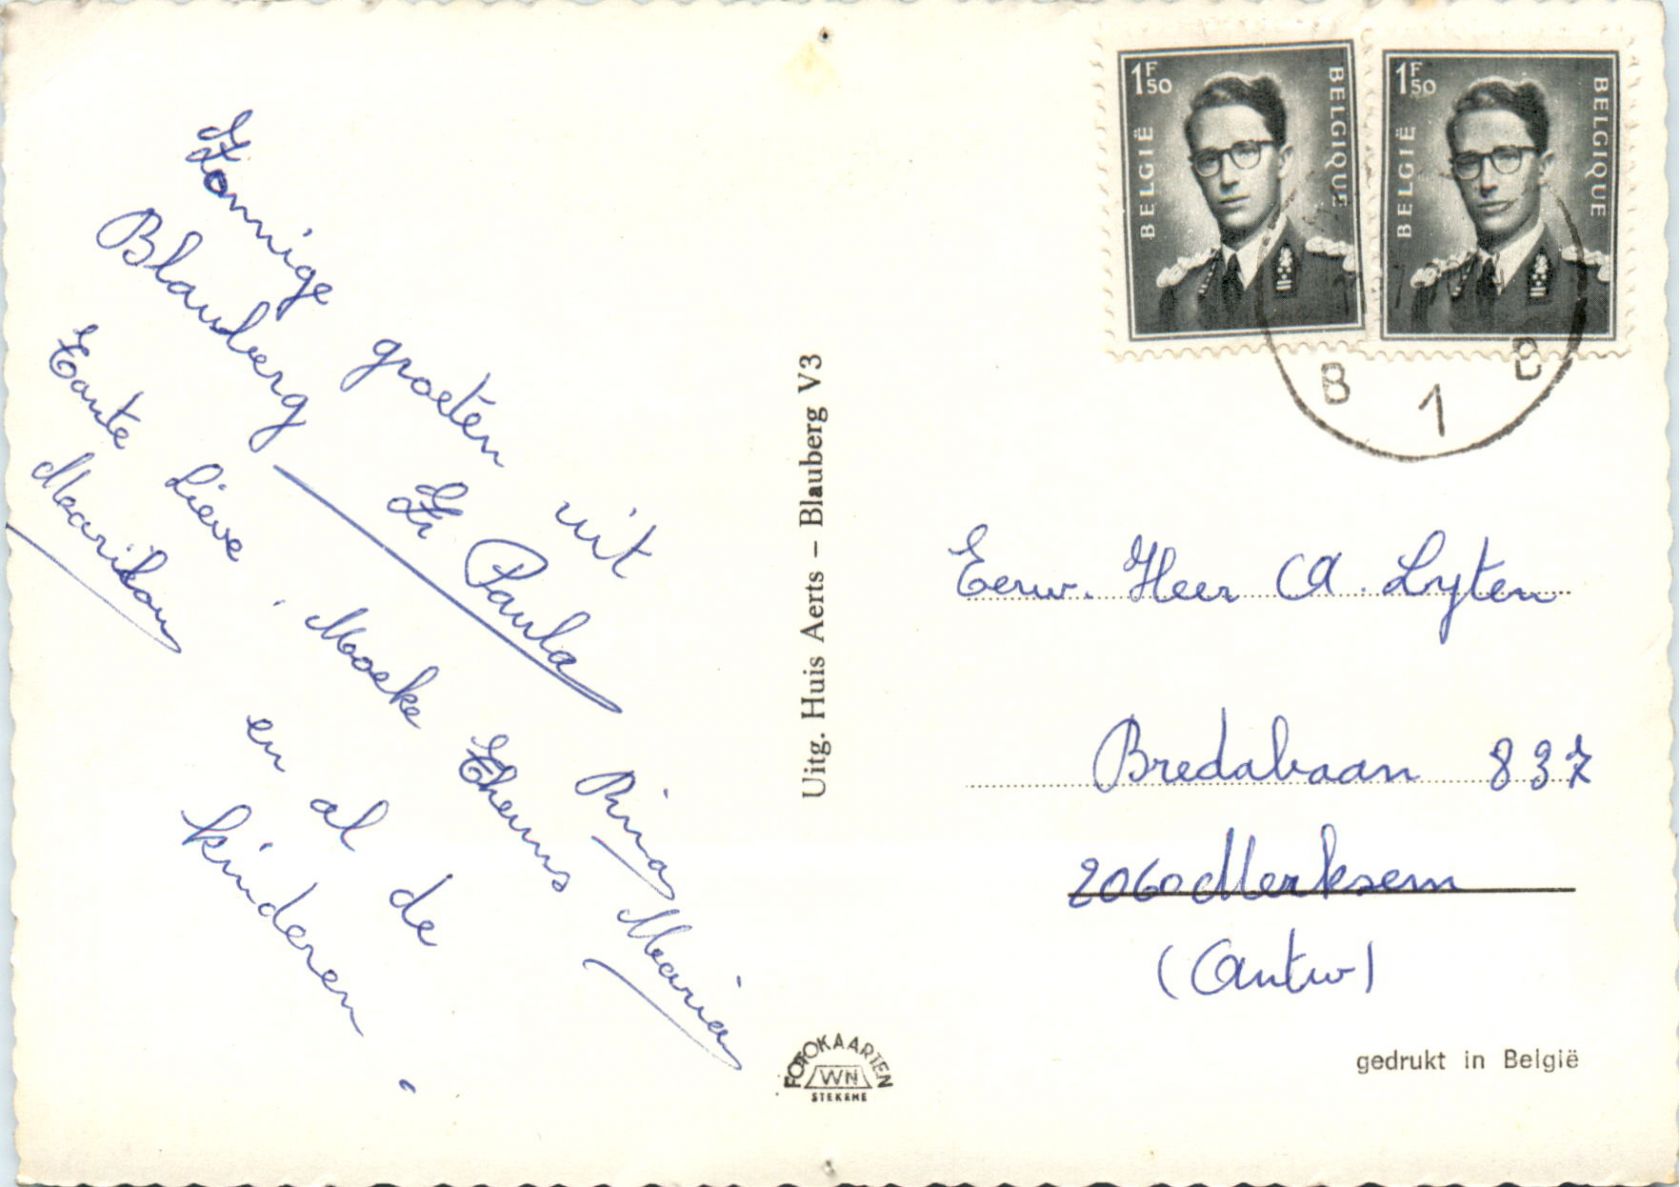 Zonnige groeten uit
Blauberg Zr Paula
Tante Lieve, Moeke Theuns Rina Maria
Marileen en al de
kinderen.
Uitg. Huis Aerts – Blauberg V3
FOTOKAARTEN
WN
STEKENE
1F50
BELGIË
BELGIQUE
1F50
BELGIË
BELGIQUE
B 1 B
Eerw. Heer A. Lyten
Bredabaan 837
2060 Merksem
(Antw)
gedrukt in België